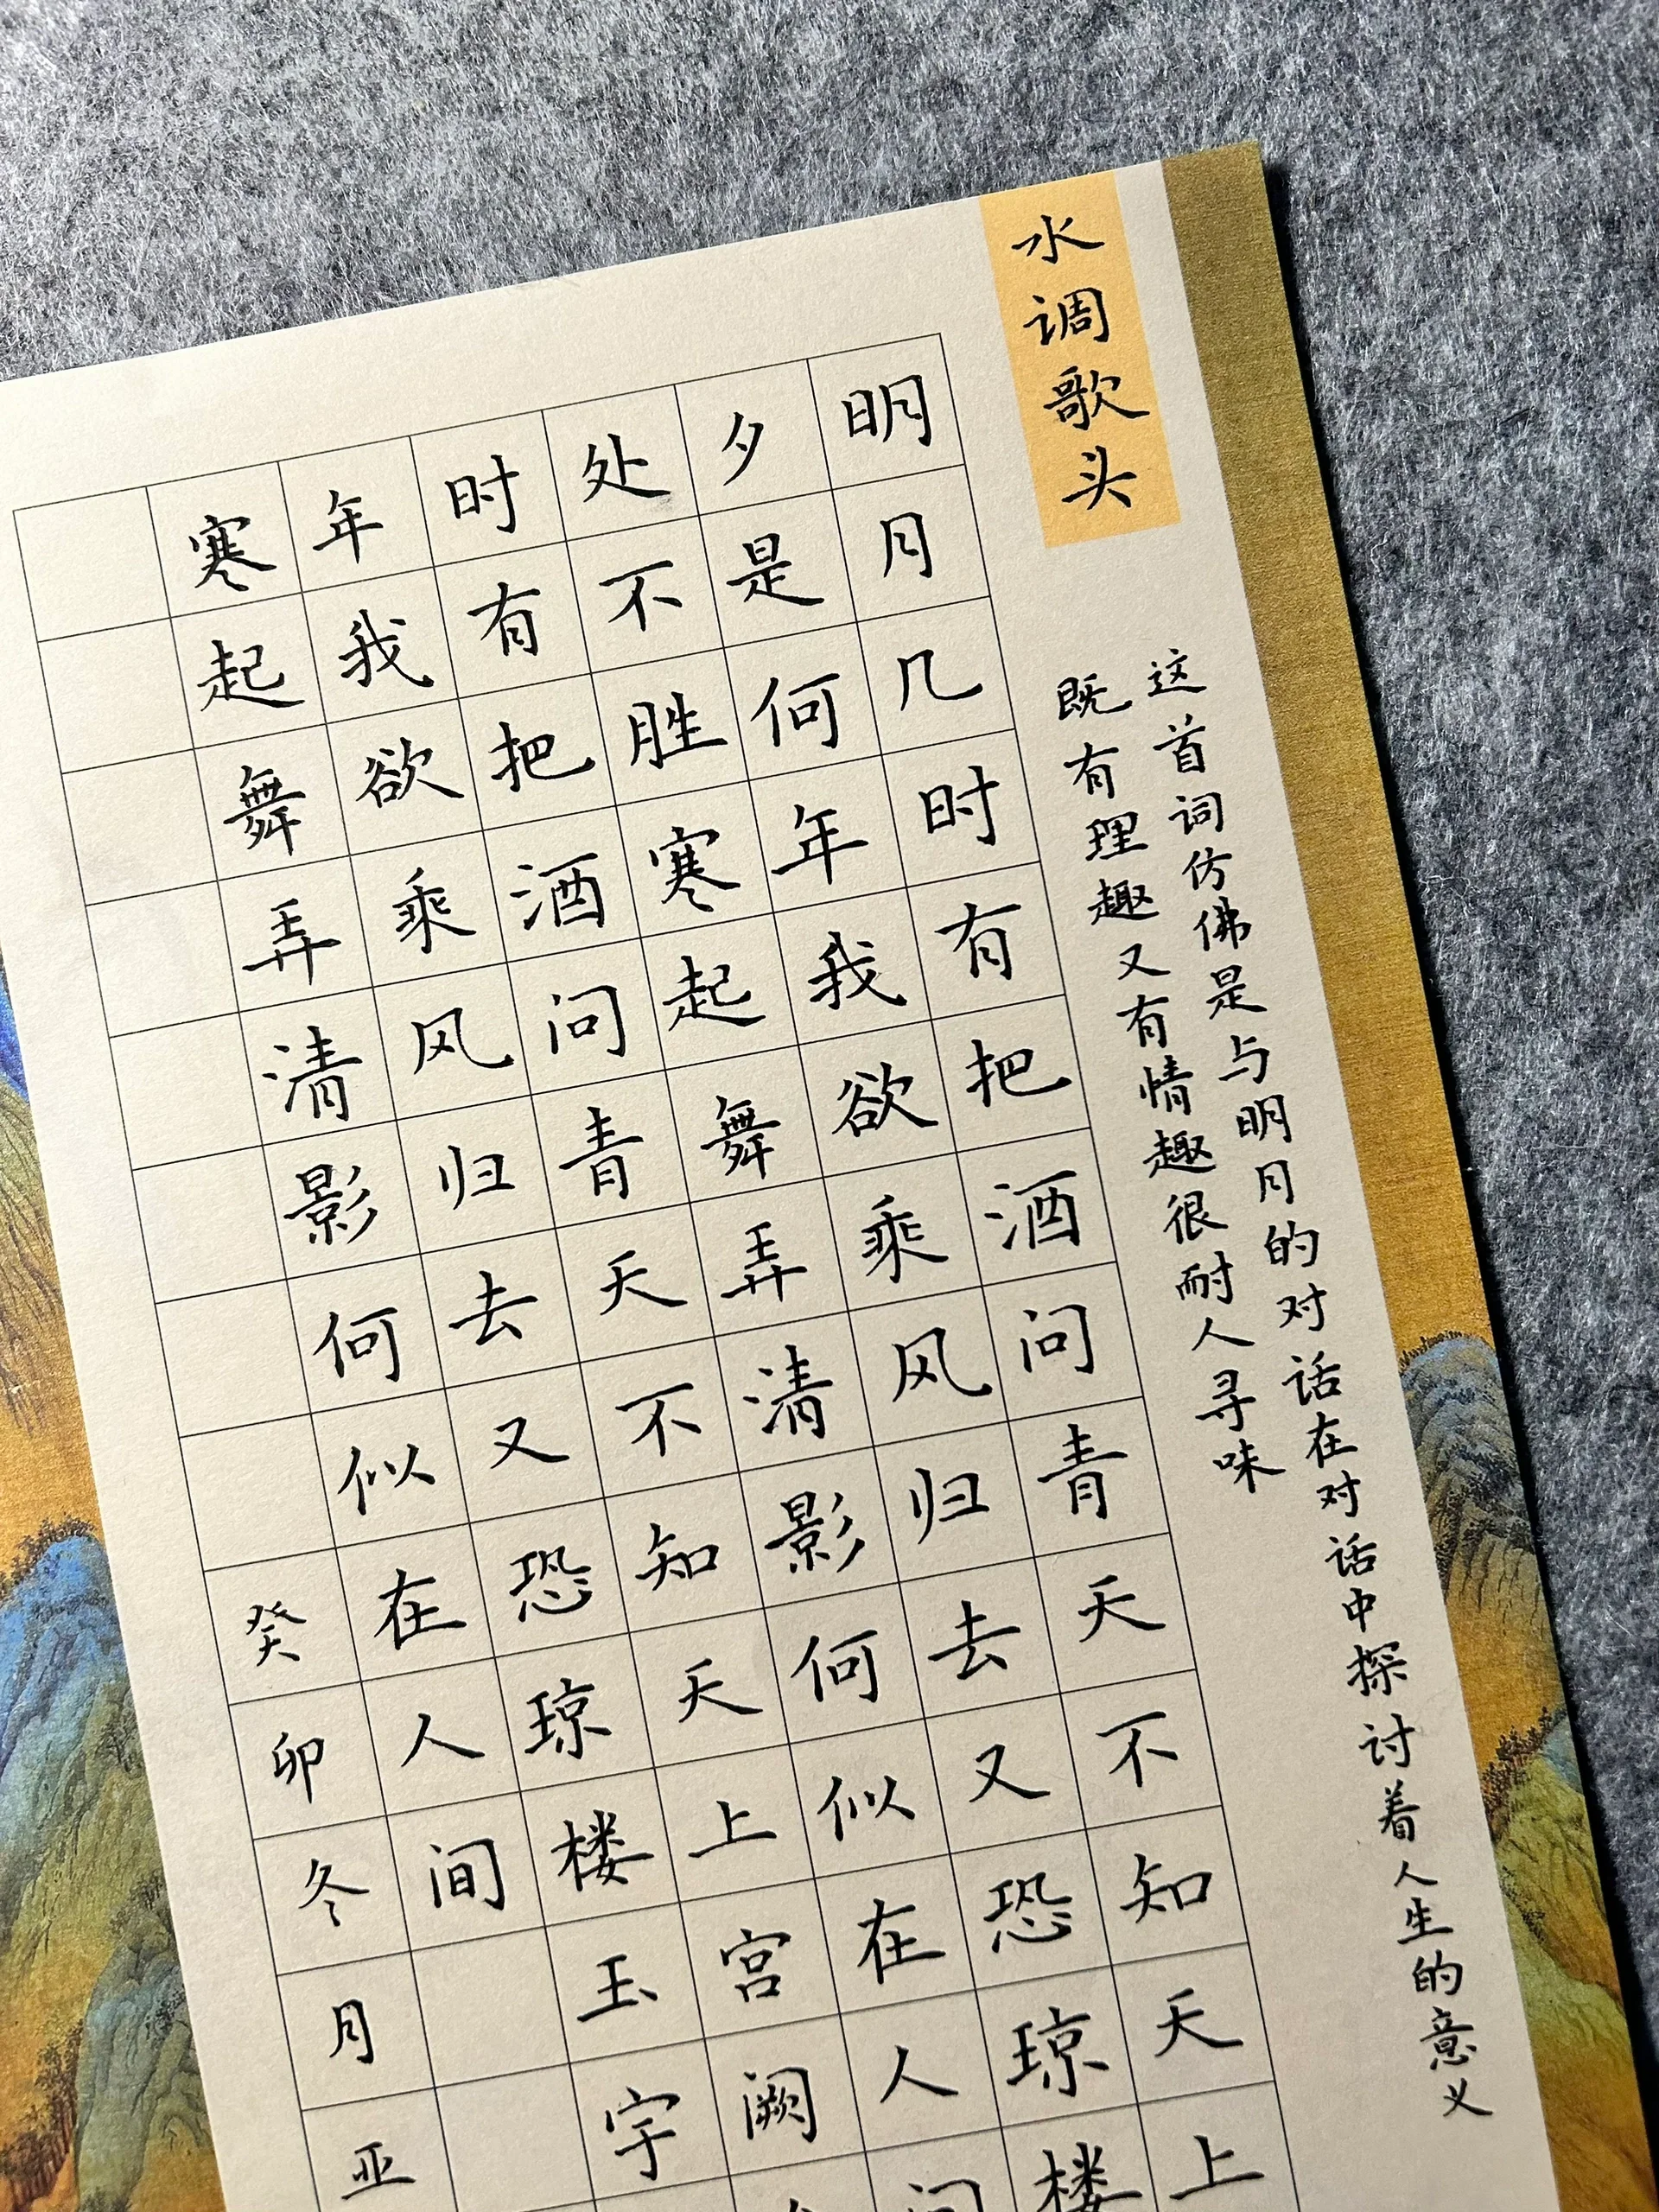 水调歌头
这首词仿佛是与明月的对话在对话中探讨着人生的意义
既有理趣又有情趣很耐人寻味
明月几时有把酒问青天不知天上
夕是何年我欲乘风归去又恐琼楼
处不胜寒起舞弄清影何似在人间
时有把酒问青天不知天上宫阙
年我欲乘风归去又恐琼楼玉宇
寒起舞弄清影何似在人间
癸卯冬月亚